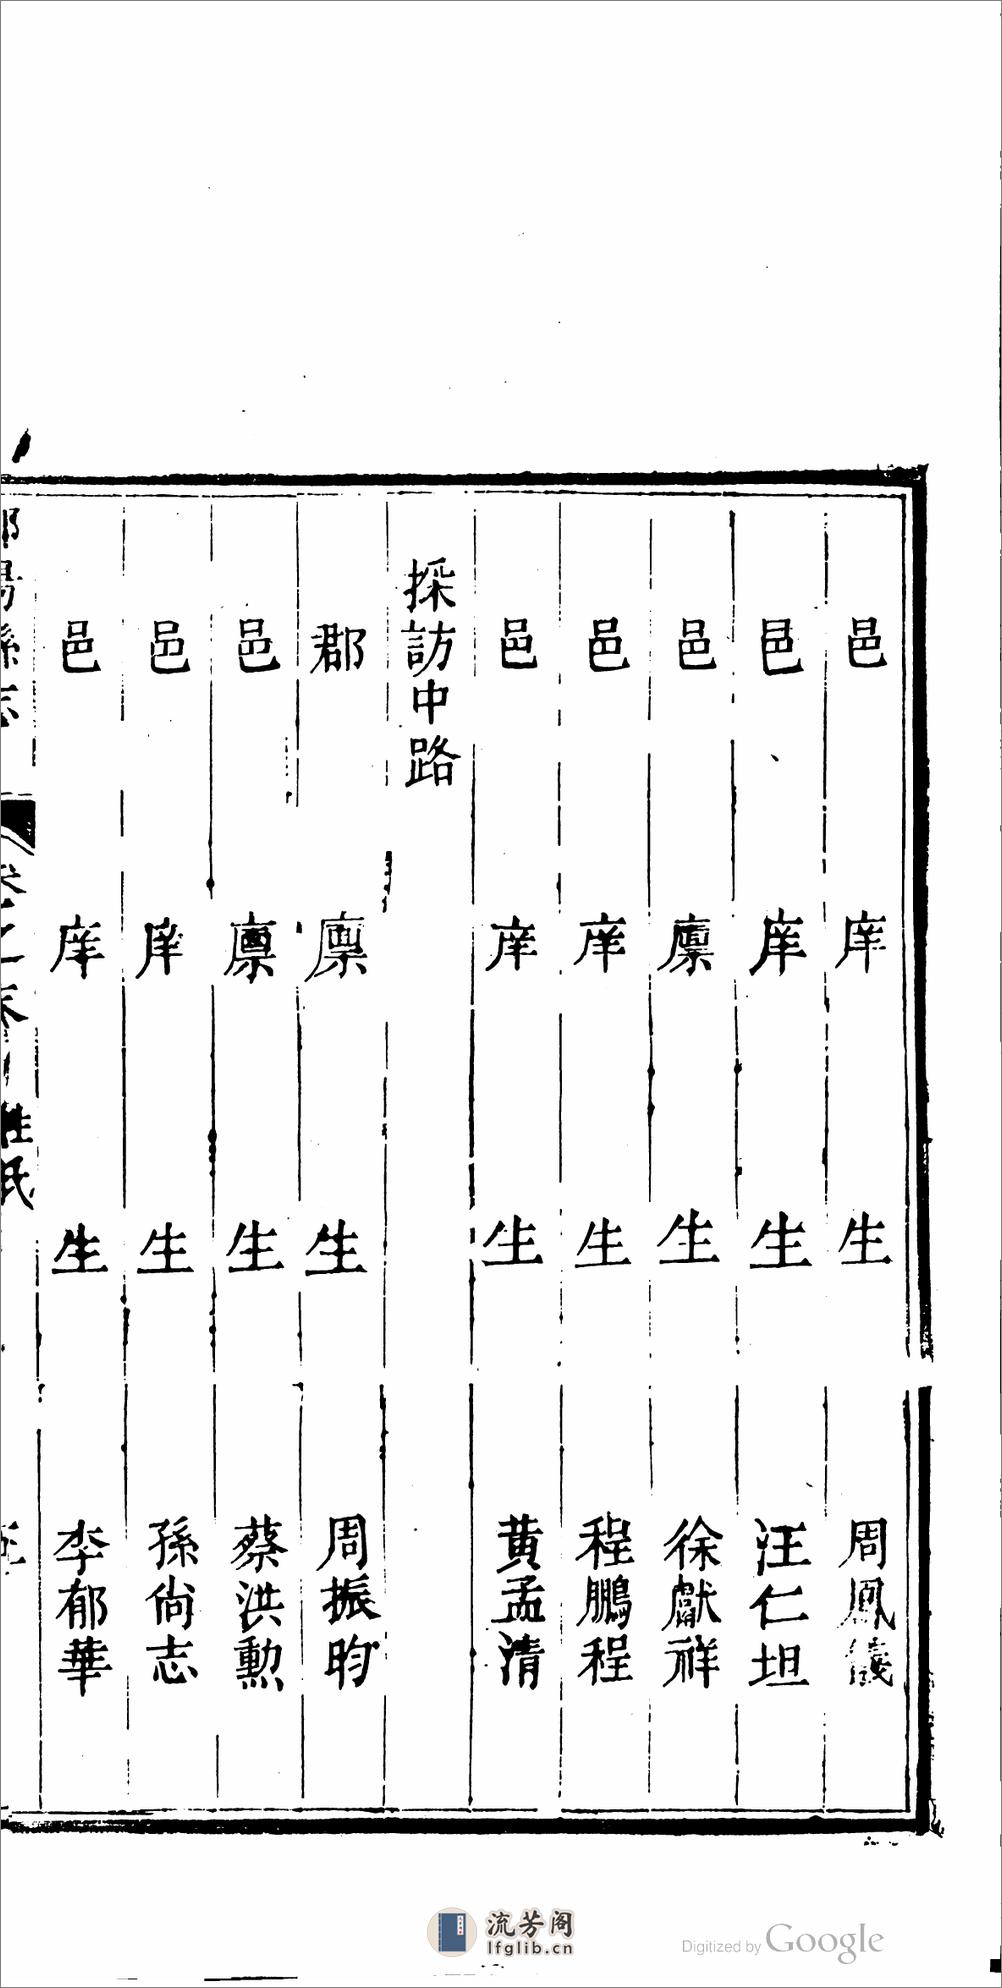 邑庠生周鳳儀
邑庠生汪仁坦
邑廪生徐獻祥
邑庠生程鵬程
邑庠生黄孟清
採訪中路
郡廪生周振昀
邑廪生蔡洪勳
邑庠生孫尙志
邑庠生李郁華
陽縣志
卷之末
姓氏
流芳阁
lfglib.cn
Digitized by Google